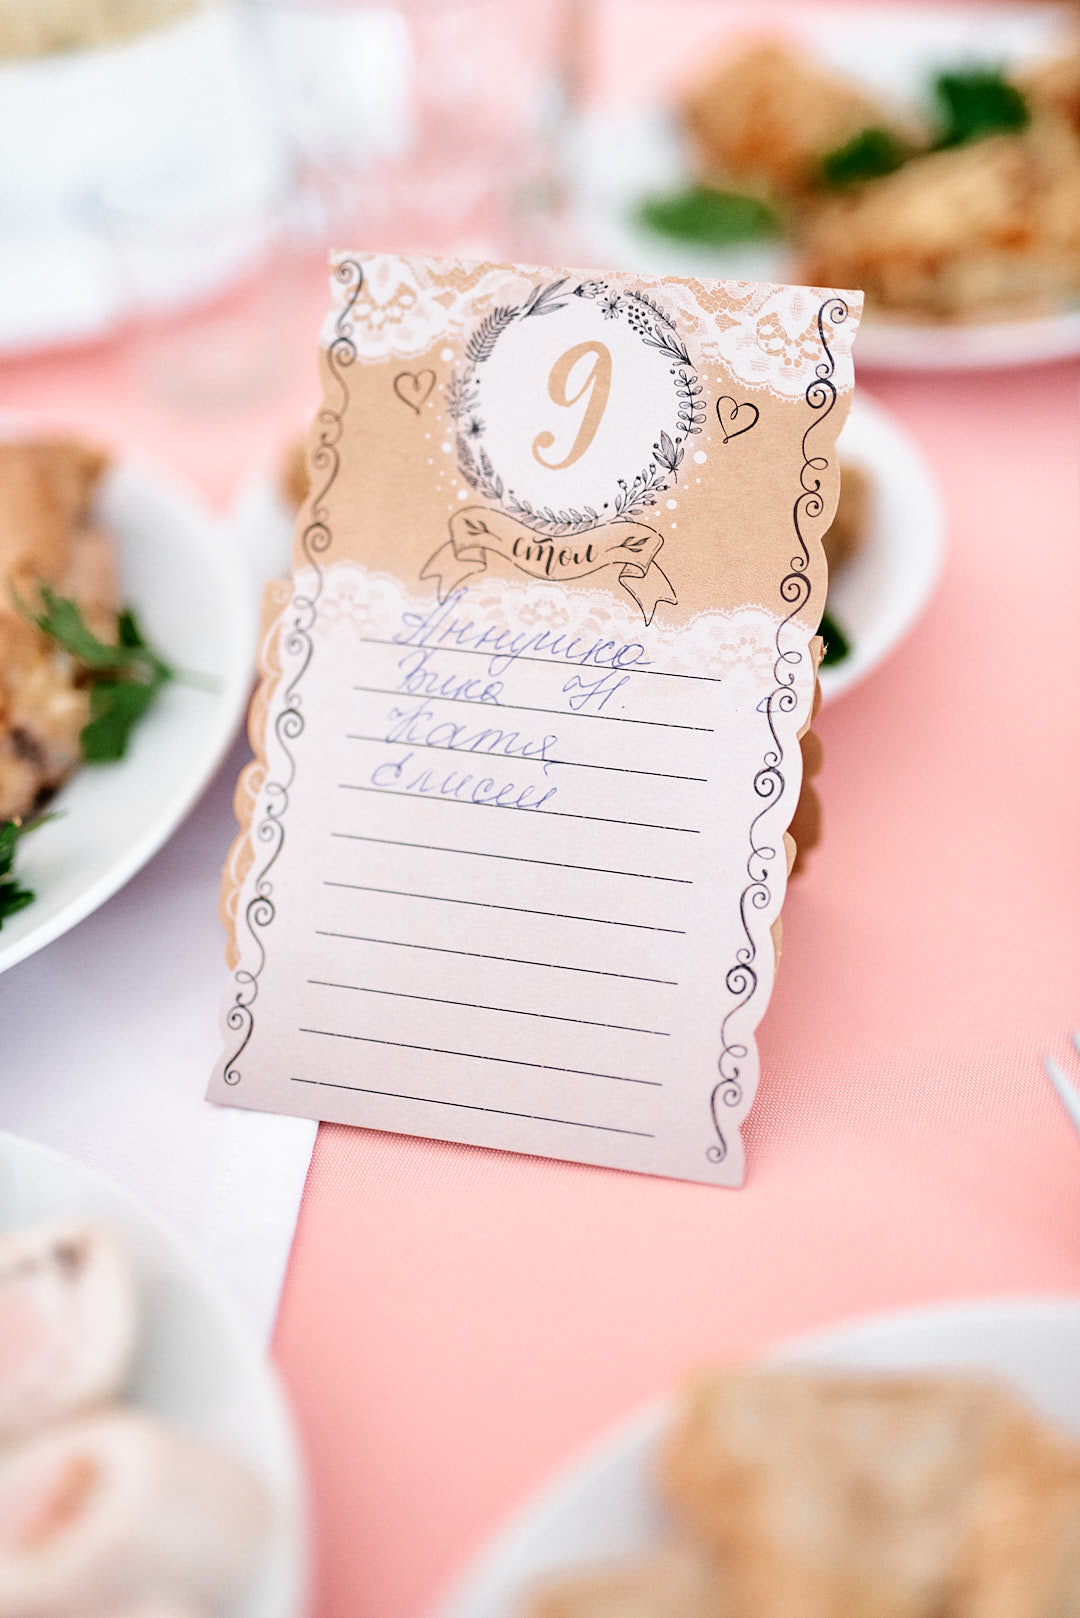 9
стол
Аннушка
Вика Н.
Катя
Елисей